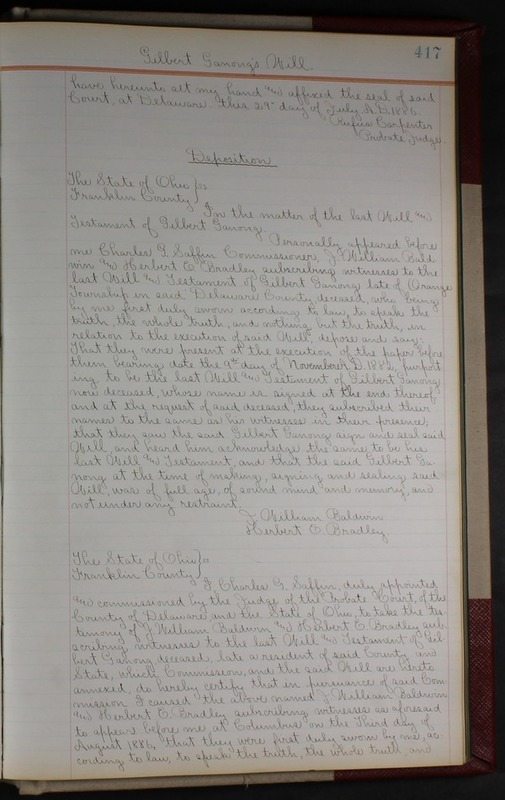 Gilbert Ganong's Will.
417
have hereunto set my hand and affixed the seal of said
Court, at Delaware this 29" day of July A.D. 1886.
Rufus Carpenter
Probate Judge
Deposition
The State of Ohio } ss
Franklin County }
In the matter of the last Will and
Testament of Gilbert Ganong.
Personally appeared before
me Charles G. Saffin Commissioner, J. William Bald
win and Herbert E. Bradley subscribing witnesses to the
last Will and Testament of Gilbert Ganong late of Orange
Township in said Delaware County, deceased, who being
by me first duly sworn according to law, to speak the
truth, the whole truth, and nothing but the truth, in
relation to the execution of said Will, depose and say:
That they were present at the execution of the paper before
them bearing date the 9th day of November A.D. 1882, purport
ing to be the last Will and Testament of Gilbert Ganong
now deceased, whose name is signed at the end thereof,
and at the request of said deceased, they subscribed their
names to the same as his witnesses in their presence;
that they saw the said Gilbert Ganong sign and seal said
Will, and heard him acknowledge the same to be his
last Will and Testament, and that the said Gilbert Ga-
nong at the time of making, signing and sealing said
Will, was of full age, of sound mind and memory, and
not under any restraint.
J. William Baldwin
Herbert E. Bradley
The State of Ohio } ss
Franklin County }
I, Charles G. Saffin, duly appointed
and commissioned by the Judge of the Probate Court, of the
County of Delaware and the State of Ohio, to take the tes-
timony of J. William Baldwin and Herbert E. Bradley sub-
scribing witnesses to the last Will and Testament of Gil-
bert Ganong deceased, late a resident of said County and
State, which Commission, and the said Will are hereto
annexed, do hereby certify that in pursuance of said Com-
mission I caused the above named J. William Baldwin
and Herbert E. Bradley subscribing witnesses as aforesaid
to appear before me, at Columbus on the Third day of
August 1886, that they were first duly sworn by me, ac-
cording to law, to speak the truth, the whole truth, and